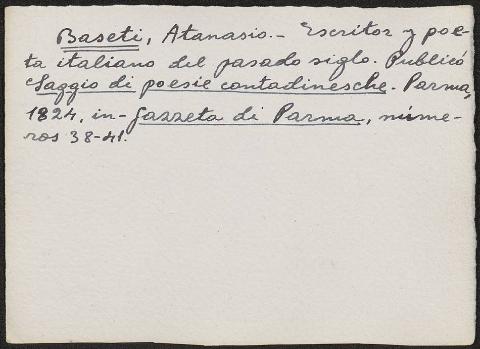 Baseti, Atanasio.- Escritor y poe-
ta italiano del pasado siglo. Publicó
Saggio di poesie contadinesche. Parma,
1824, in-Gazzeta di Parma, núme-
ros 38-41.